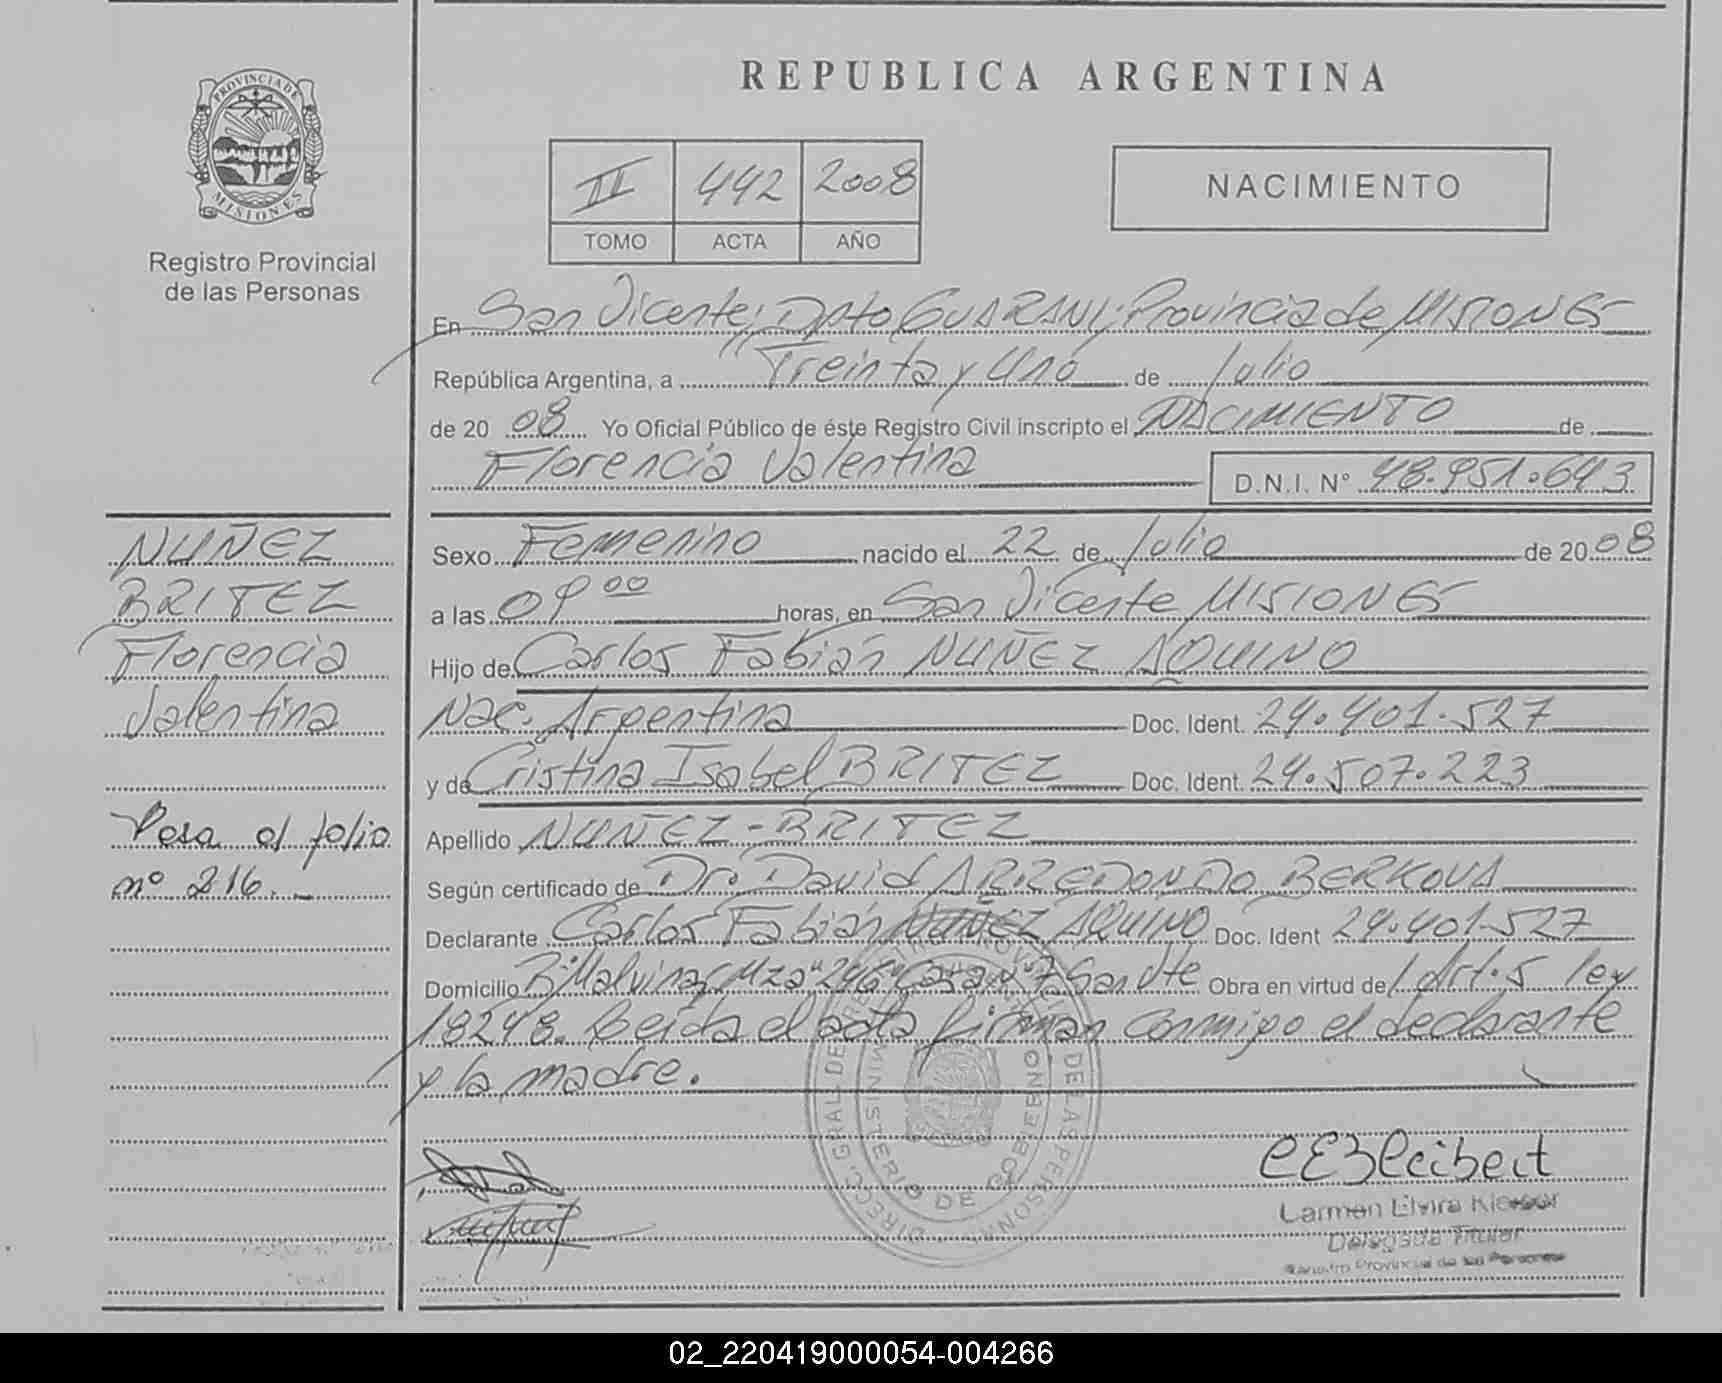 REPUBLICA ARGENTINA
PROVINCIA DE
MISIONES
Registro Provincial
de las Personas
II 442 2008
TOMO ACTA AÑO
NACIMIENTO
En San Vicente; Dpto GUARANI; Provincia de MISIONES
República Argentina, a Treinta y Uno de Julio
de 20 08 Yo Oficial Público de éste Registro Civil inscripto el NACIMIENTO de
Florencia Valentina D.N.I. N° 48.951.643
NUÑEZ
BRITEZ
Florencia
Valentina
Pasa al folio
nº 216.
Sexo Femenino nacido el 22 de Julio de 20 08
a las 09 00 horas, en San Vicente MISIONES
Hijo de Carlos Fabián NUÑEZ AQUINO
Nac. Argentina Doc. Ident. 24.401.527
y de Cristina Isabel BRITEZ Doc. Ident. 24.507.223
Apellido NUÑEZ-BRITEZ
Según certificado de Dr. David ARREDONDO BERKOVA
Declarante Carlos Fabián NUÑEZ AQUINO Doc. Ident 24.401.527
Domicilio B° Malvinas Mza "246" Casa n° 7 San Vte Obra en virtud de Art. 5 ley
18248. Leída el acta firman conmigo el declarante
y la madre.
MINISTERIO DE GOBIERNO
DE LAS PERSONAS
DIRECC. GRAL. DE
Carmen Elvira
Delegada Titular
Registro Provincial de las Personas
02_220419000054-004266